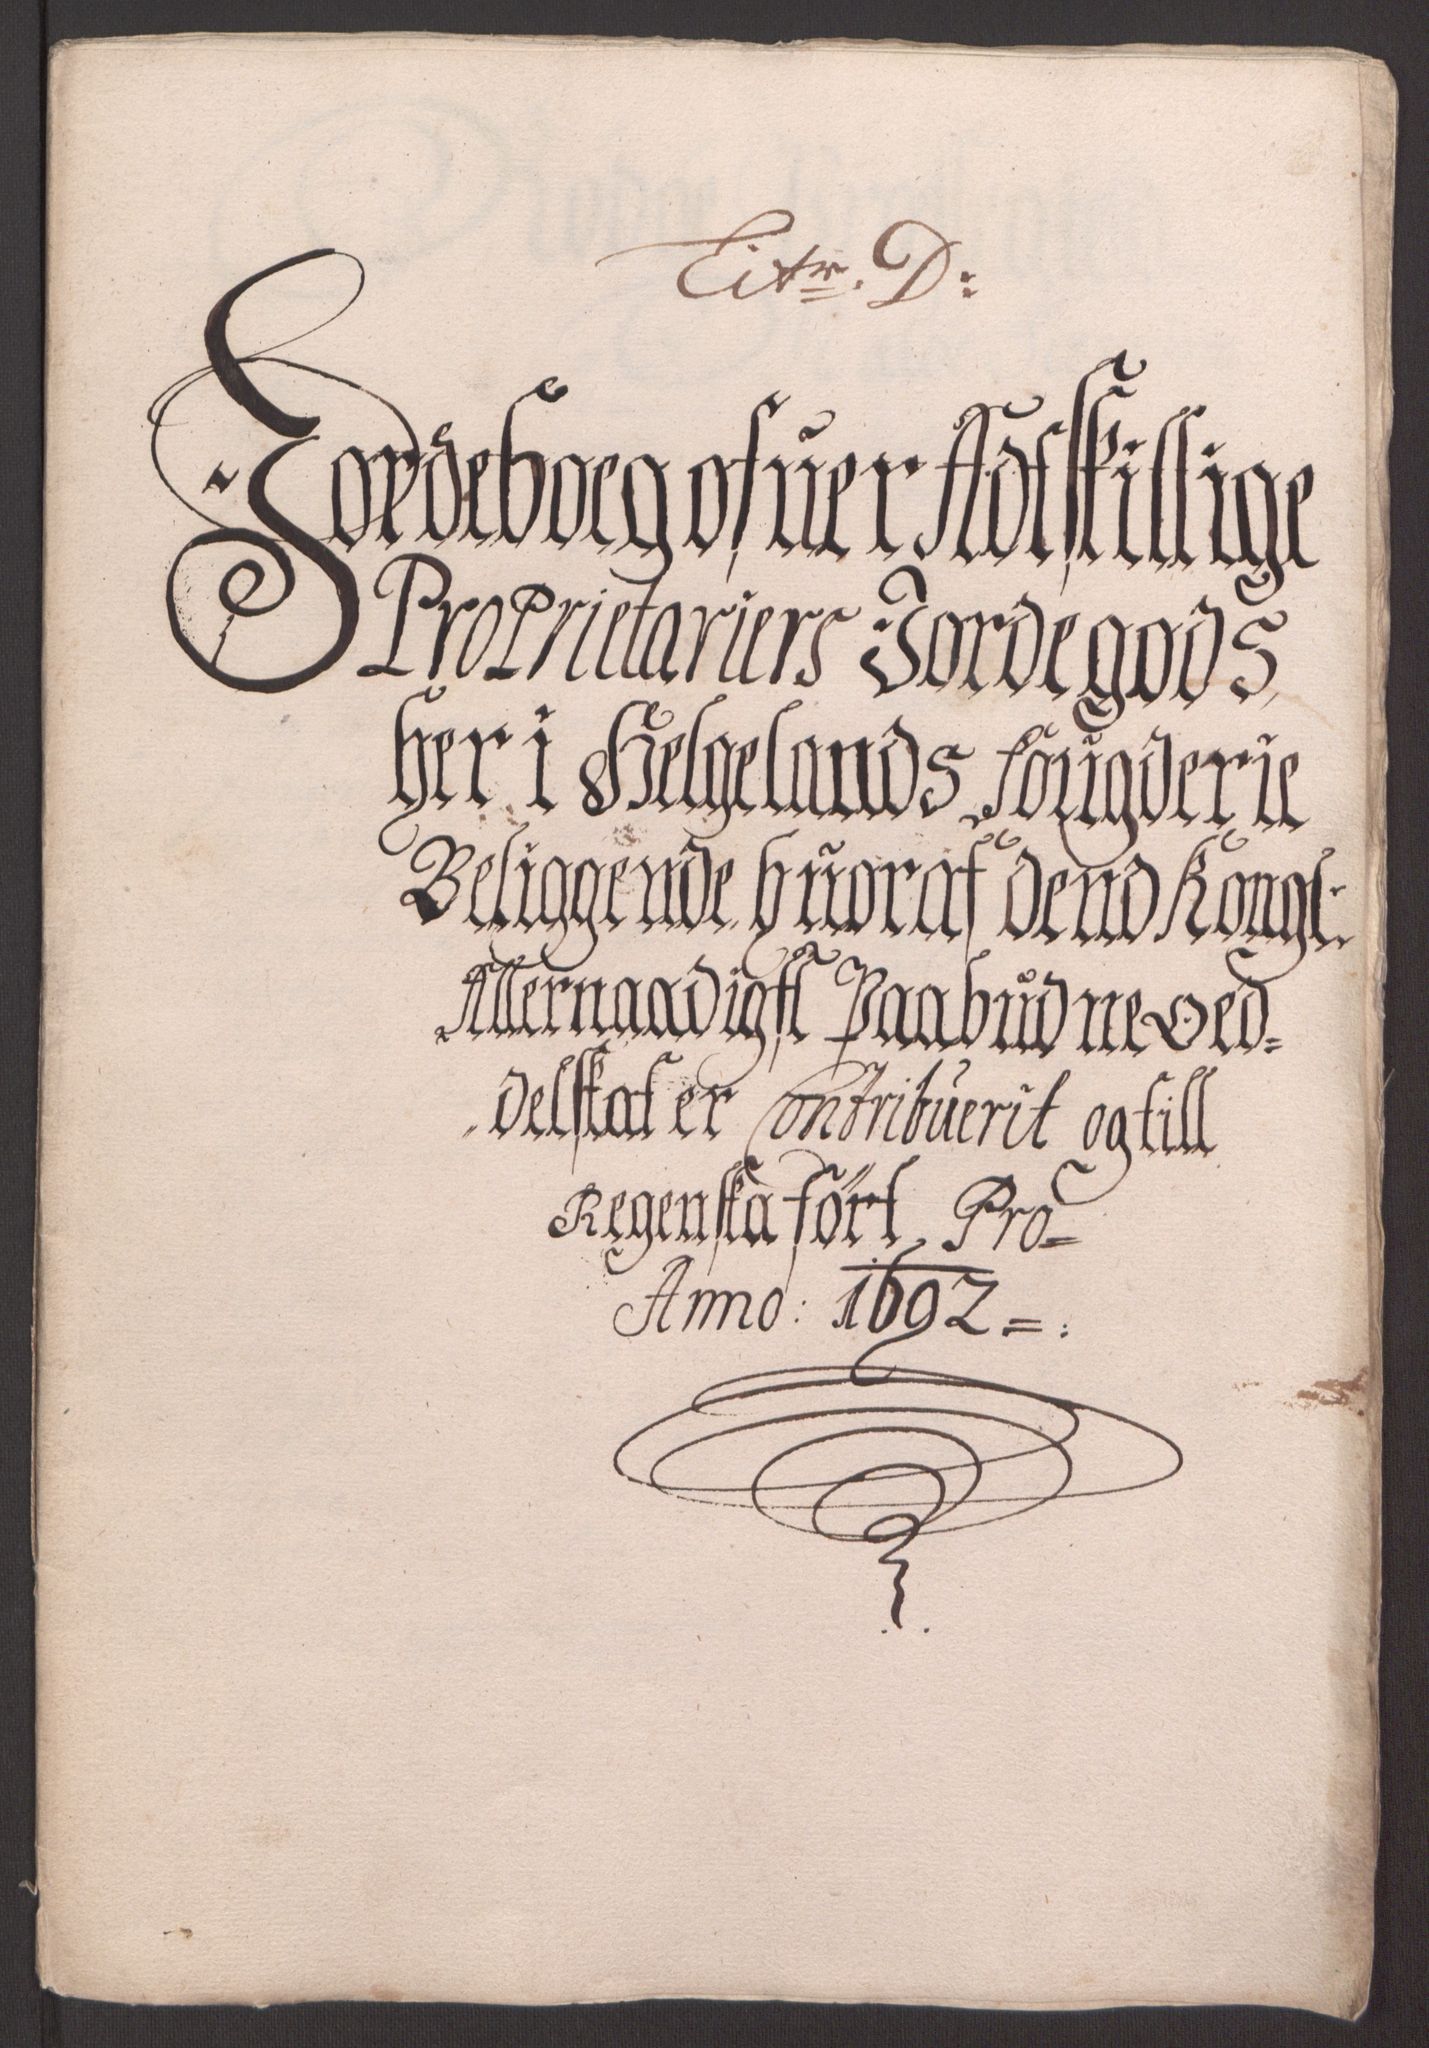 Litr. D:
Jordeboeg ofuer Adtskillige
Proprietariers Jordegods
her i Helgelands fougderie
Beliggende huoraf dend Kongl:
Allernaadigst Paabudne Oed=
delskat er Contribuerit og till
Regenskaført Pro=
Anno: 1692=: